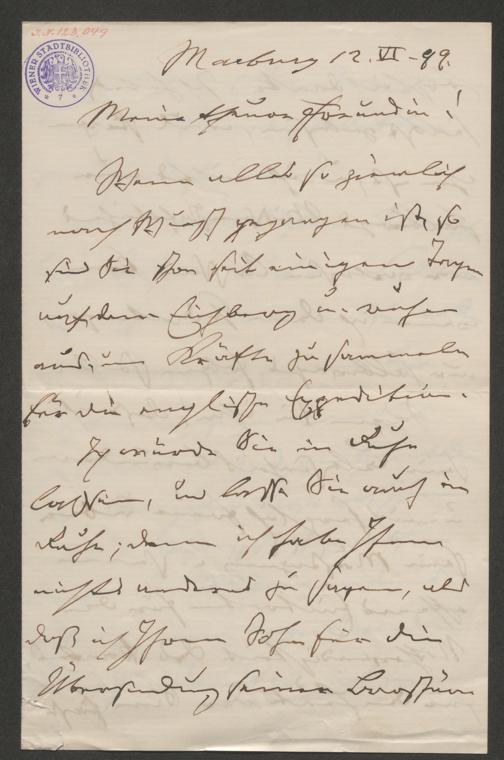 I.N. 123.049
WIENER STADTBIBLIOTHEK
* 7 *
Marburg 12. VI - 99.
Meine theure Freundin!
Wenn alles so ziemlich
nach Wunsch gegangen ist, so
sind Sie schon seit einigen Tagen
auf dem Eichberg u. ruhen
aus, um Kräfte zu sammeln
für die englische Expedition.
Ich würde Sie in Ruhe
lassen, und lasse Sie auch in
Ruhe; denn ich habe Ihnen
nichts anderes zu sagen, als
daß ich Ihrem Sohn für die
Übersendung seiner Broschüre